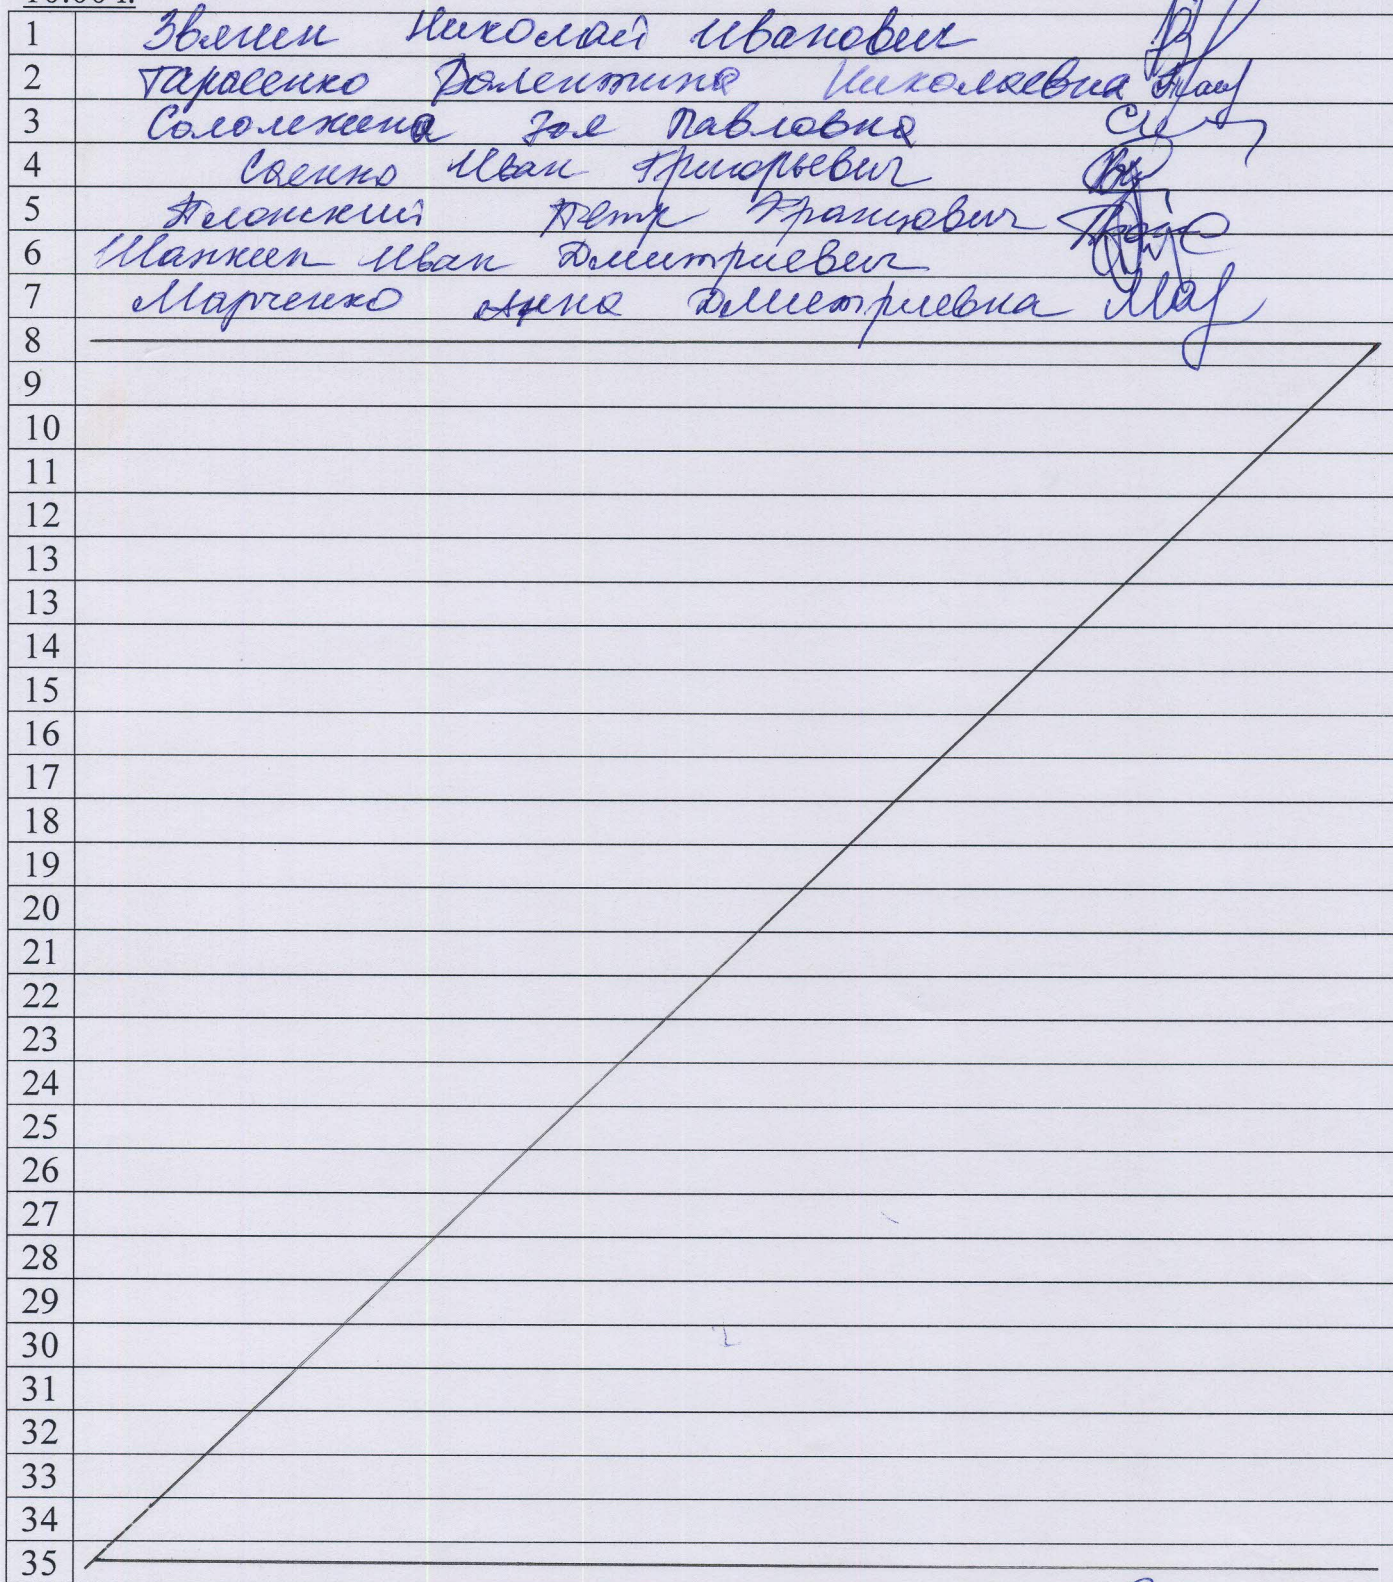 1 Звягин Николай Иванович
2 Тарасенко Валентина Николаевна
3 Соложенина Зоя Павловна
4 Саенко Иван Григорьевич
5 Плонский Петр Францович
6 Шанкин Иван Дмитриевич
7 Марченко Анна Дмитриевна
8
9
10
11
12
13
13
14
15
16
17
18
19
20
21
22
23
24
25
26
27
28
29
30
31
32
33
34
35